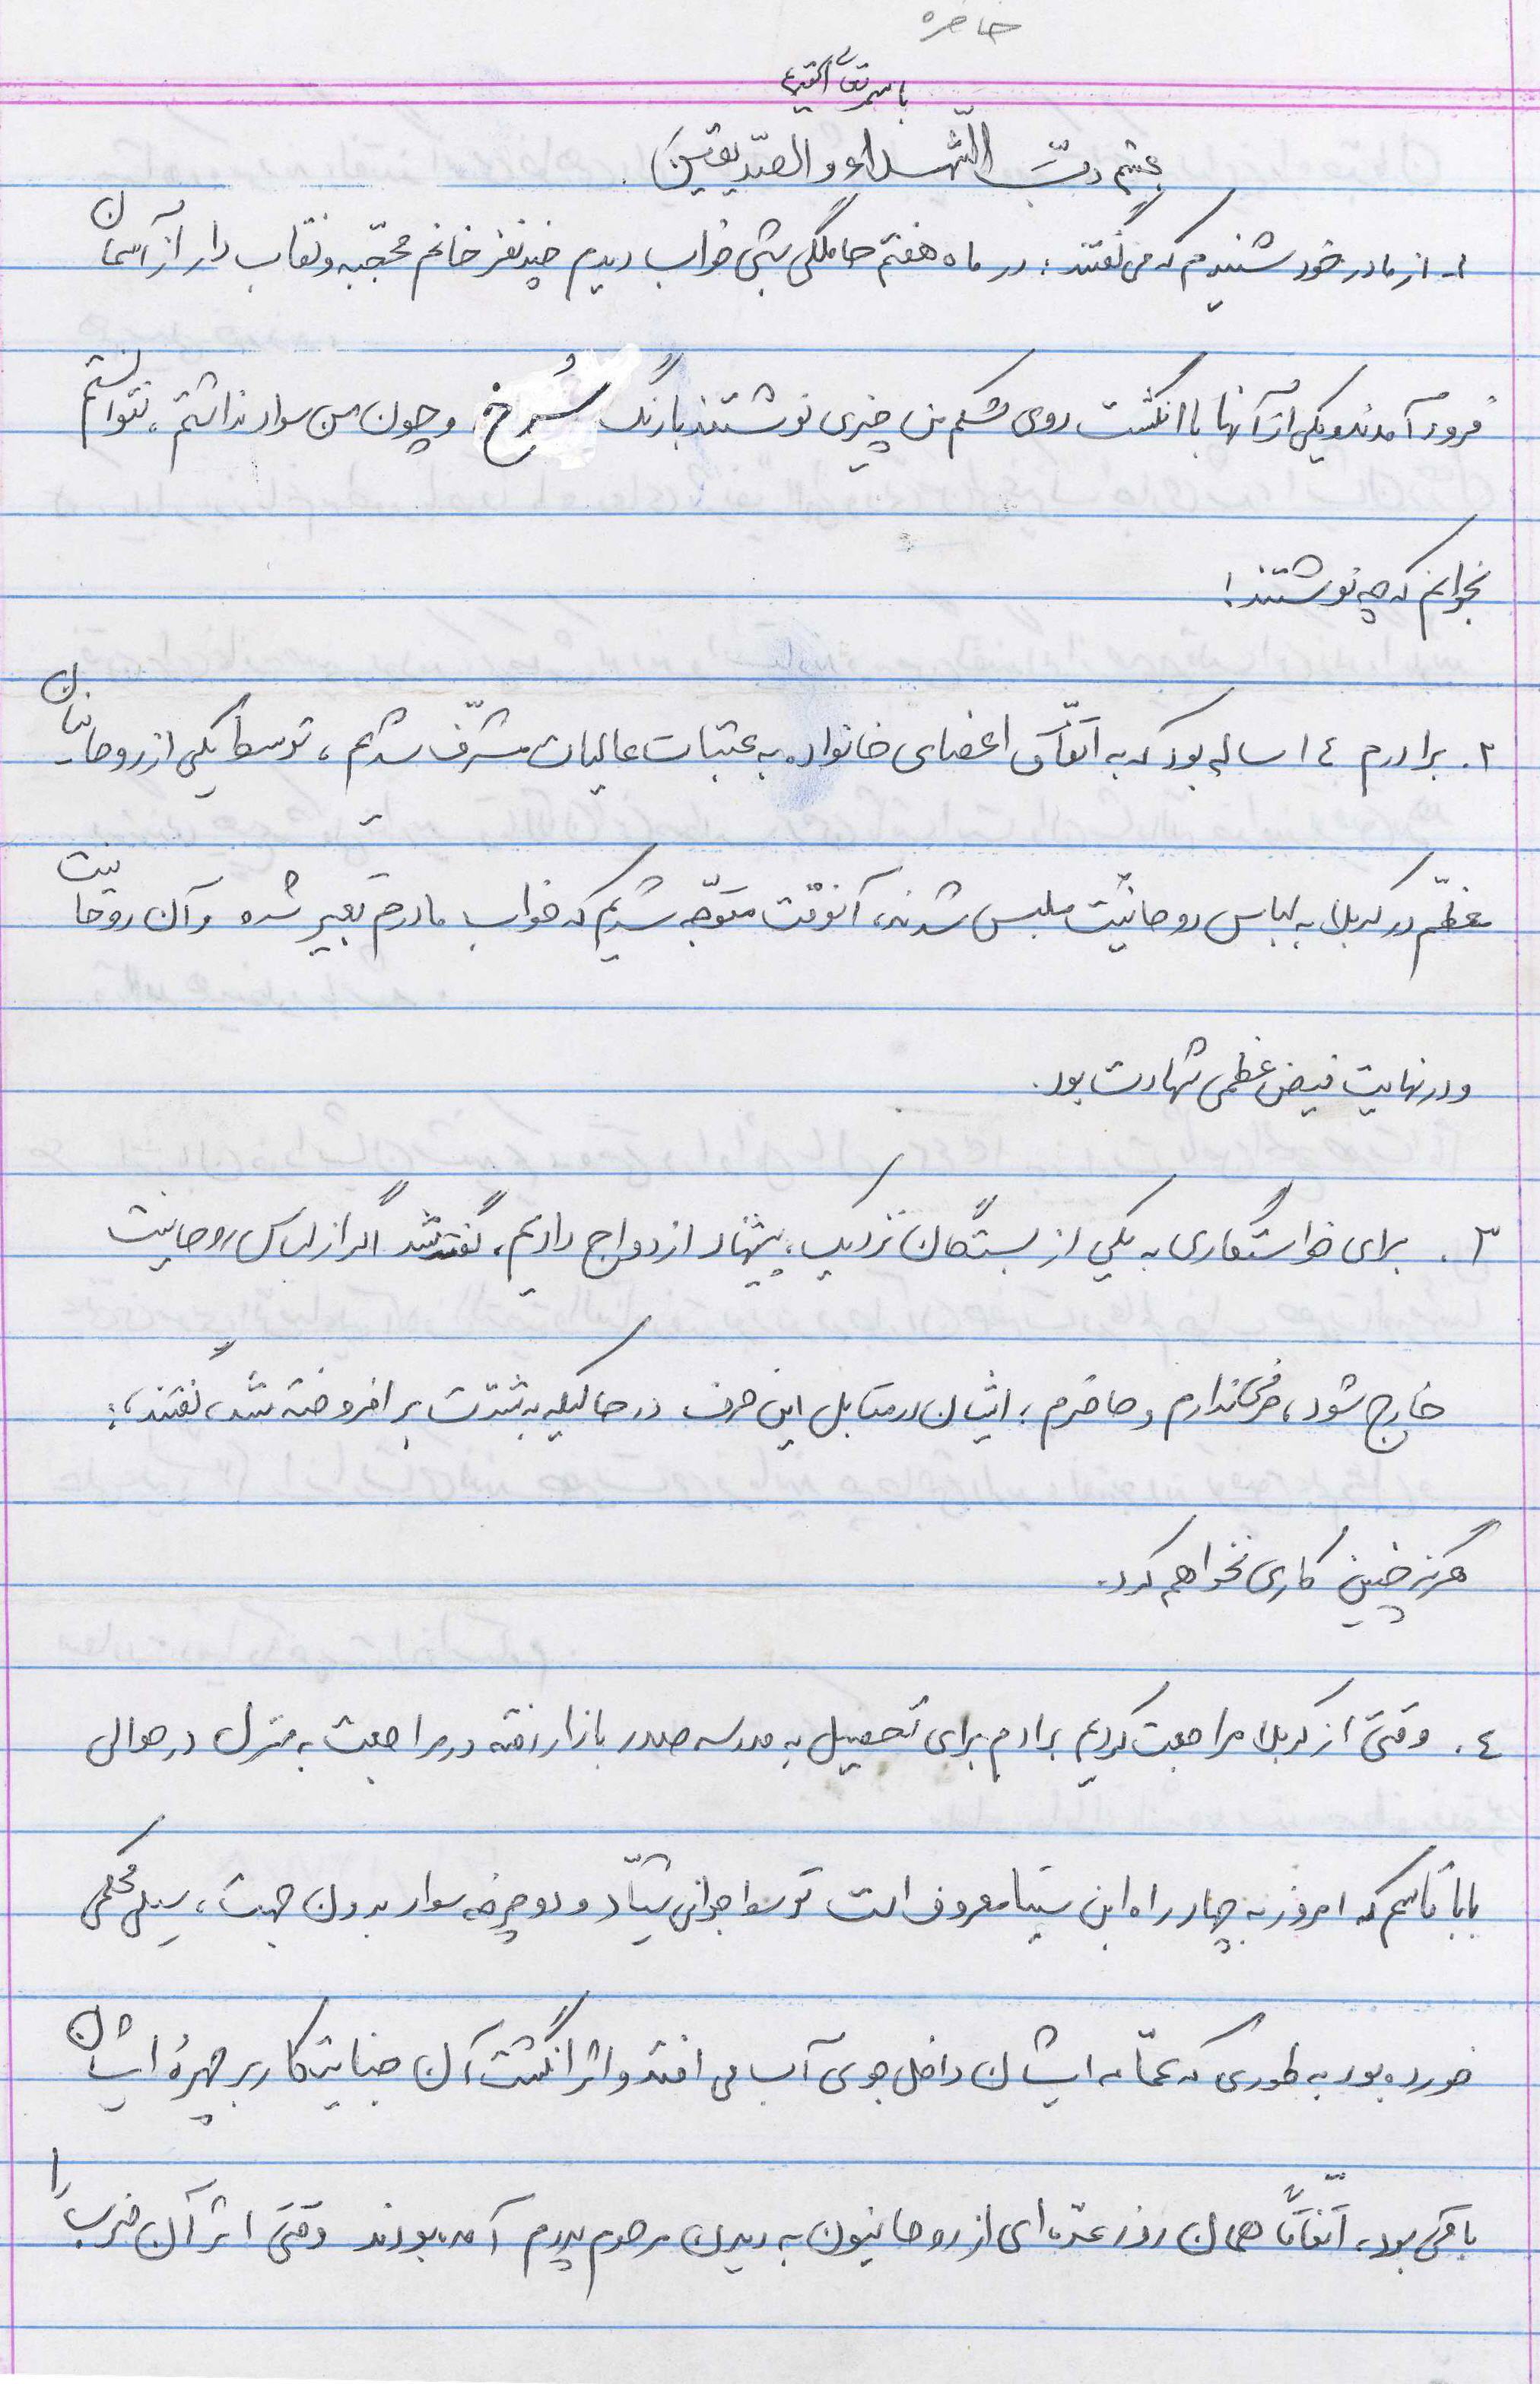 خاطره
باسمه تعالی
بسم ربّ الشّهداء والصّدیقین.
۱- از مادر خود شنیدم که می گفتند: در ماه هفتم حاملگی شبی خواب دیدم چند نفر خانم محجّبه و نقاب دار از آسمان
فرود آمدند و یکی از آنها با انگشت روی شکم من چیزی نوشتند با رنگ سُرخ، و چون من سواد نداشتم، نتوانستم
بخوانم که چه نوشتند!
۲. برادرم ۱٤ ساله بود که به اتّفاق اعضای خانواده به عتبات عالیات مشرّف شدیم، توسط یکی از روحانیان
معظّم در کربلا به لباس روحانیّت ملبس شدند، آنوقت متوّجه شدیم که خواب مادرم تعبیر شده و آن روحانیت
و در نهایت فیض عظمی شهادت بود.
۳. برای خواستگاری به یکی از بستگان نزدیک، پیشنهاد ازدواج دادیم، گفتند اگر از لباس روحانیت
خارج شود، حرفی ندارم و حاضرم؛ ایشان در مقابل این حرف در حالیکه به شدّت بر افروخته شد، گفتند:
هرگز چنین کاری نخواهم کرد.
٤. وقتی از کربلا مراجعت کردیم برادرم برای تحصیل به مدرسه صدر بازار رفته در مراجعت به منزل در حوالی
بابا قاسم که امروز به چهار راه ابن سینا معروف است توسط جوانی شیّاد و دوچرخه سوار بدون جهت، سیلی محکمی
خورده بود به طوری که عمّامه ایشان داخل جوی آب می افتد و اثر انگشت آن جنایتکار بر چهرهٔ ایشان
باقی بود، اتّفاقاً همان روز عدّه ای از روحانیون به دیدن مرحوم پدرم آمده بودند وقتی اثر آن ضرب را